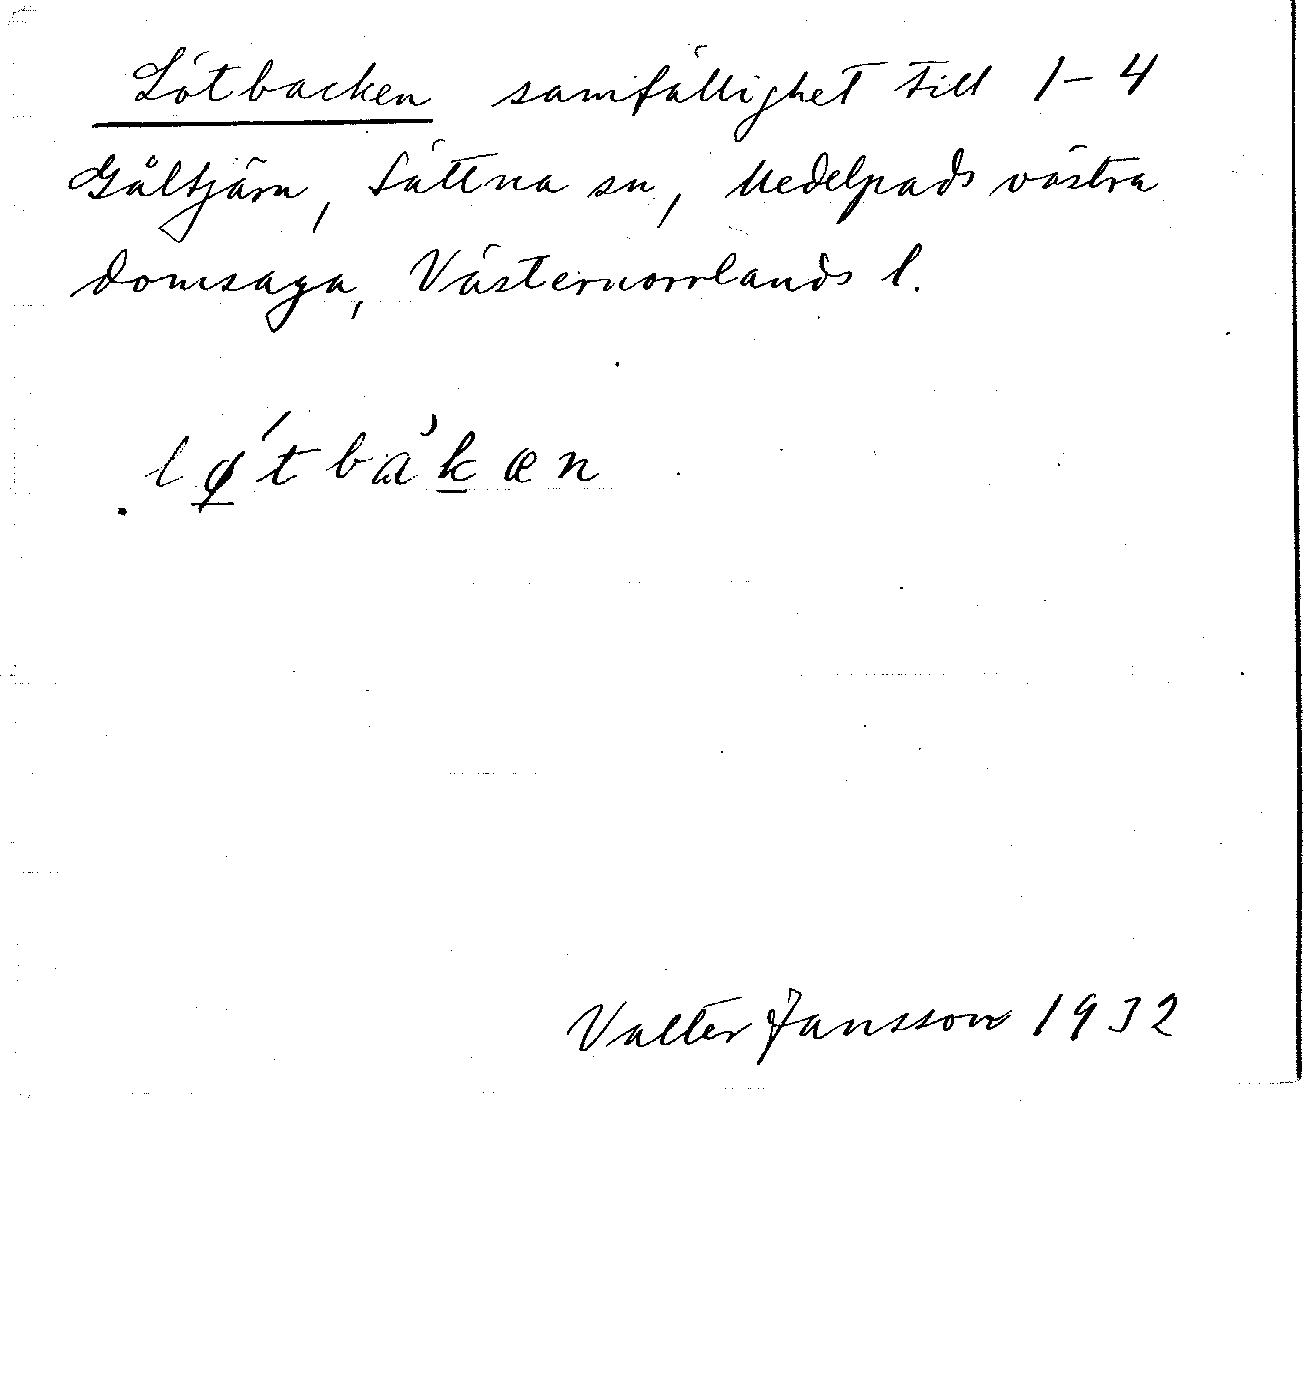 Lötbacken samfällighet till 1-4
Gåltjärn, Sättna sn, Medelpads västra
domsaga, Västernorrlands l.
lǿ̲tbàk̲æn
Valter Jansson 1932